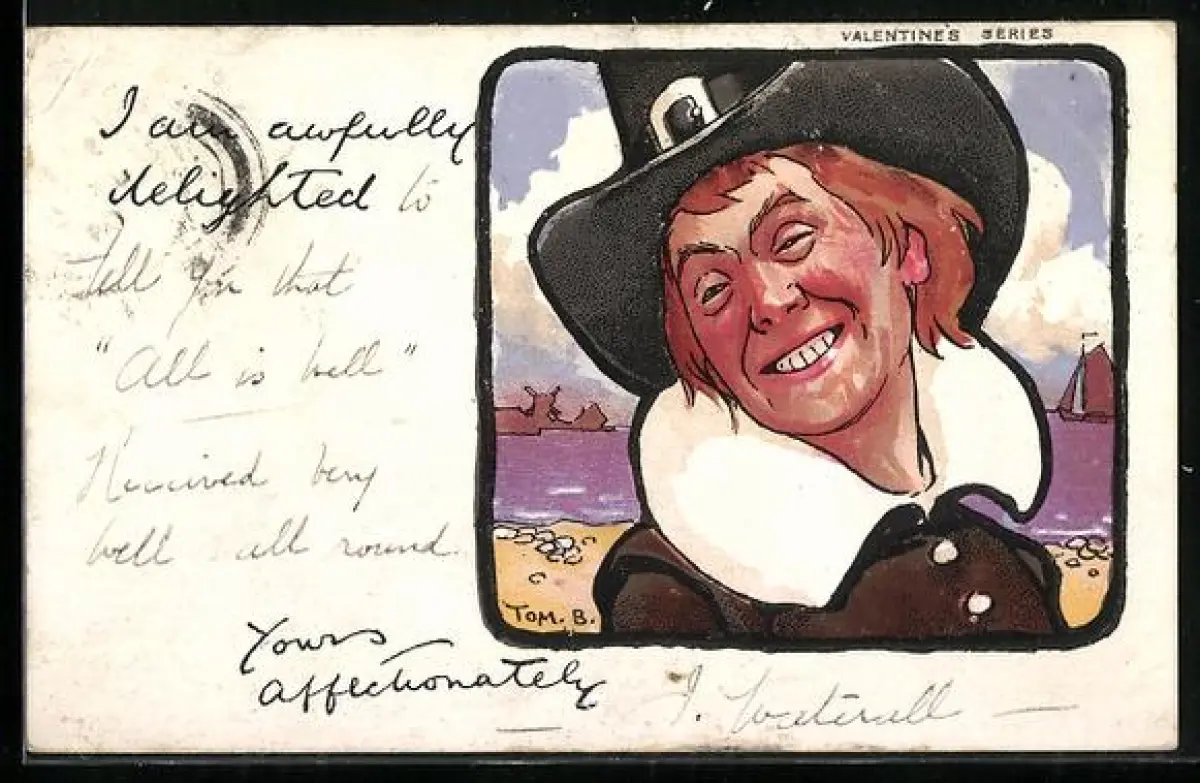 VALENTINE'S SERIES
I am awfully
delighted to
Tell you that
"All is well"
Received very
well all round.
TOM. B.
Yours
affectionately